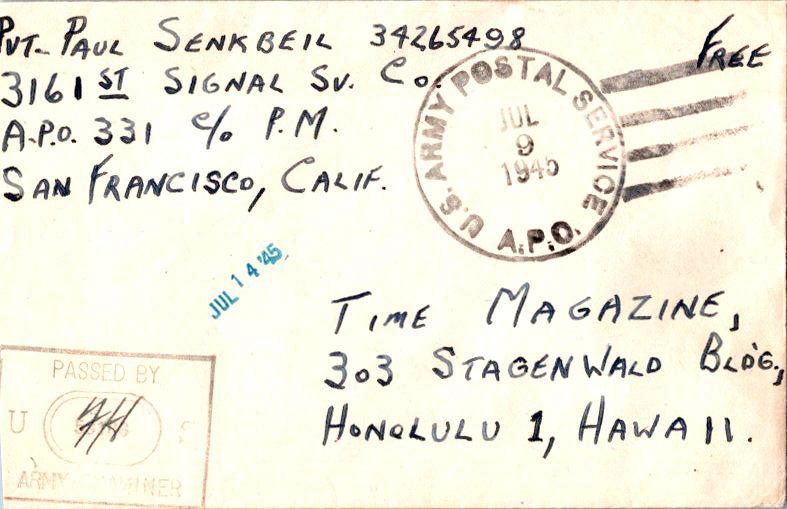 PVT. PAUL SENKBEIL 34265498
3161 ST SIGNAL SV. CO.
A.P.O. 331 c/o P.M.
SAN FRANCISCO, CALIF.
FREE
U.S. ARMY POSTAL SERVICE
JUL
9
1945
A.P.O.
JUL 14 '45
TIME MAGAZINE,
303 STAGENWALD BLDG.,
HONOLULU 1, HAWAII.
PASSED BY
U S
ARMY EXAMINER